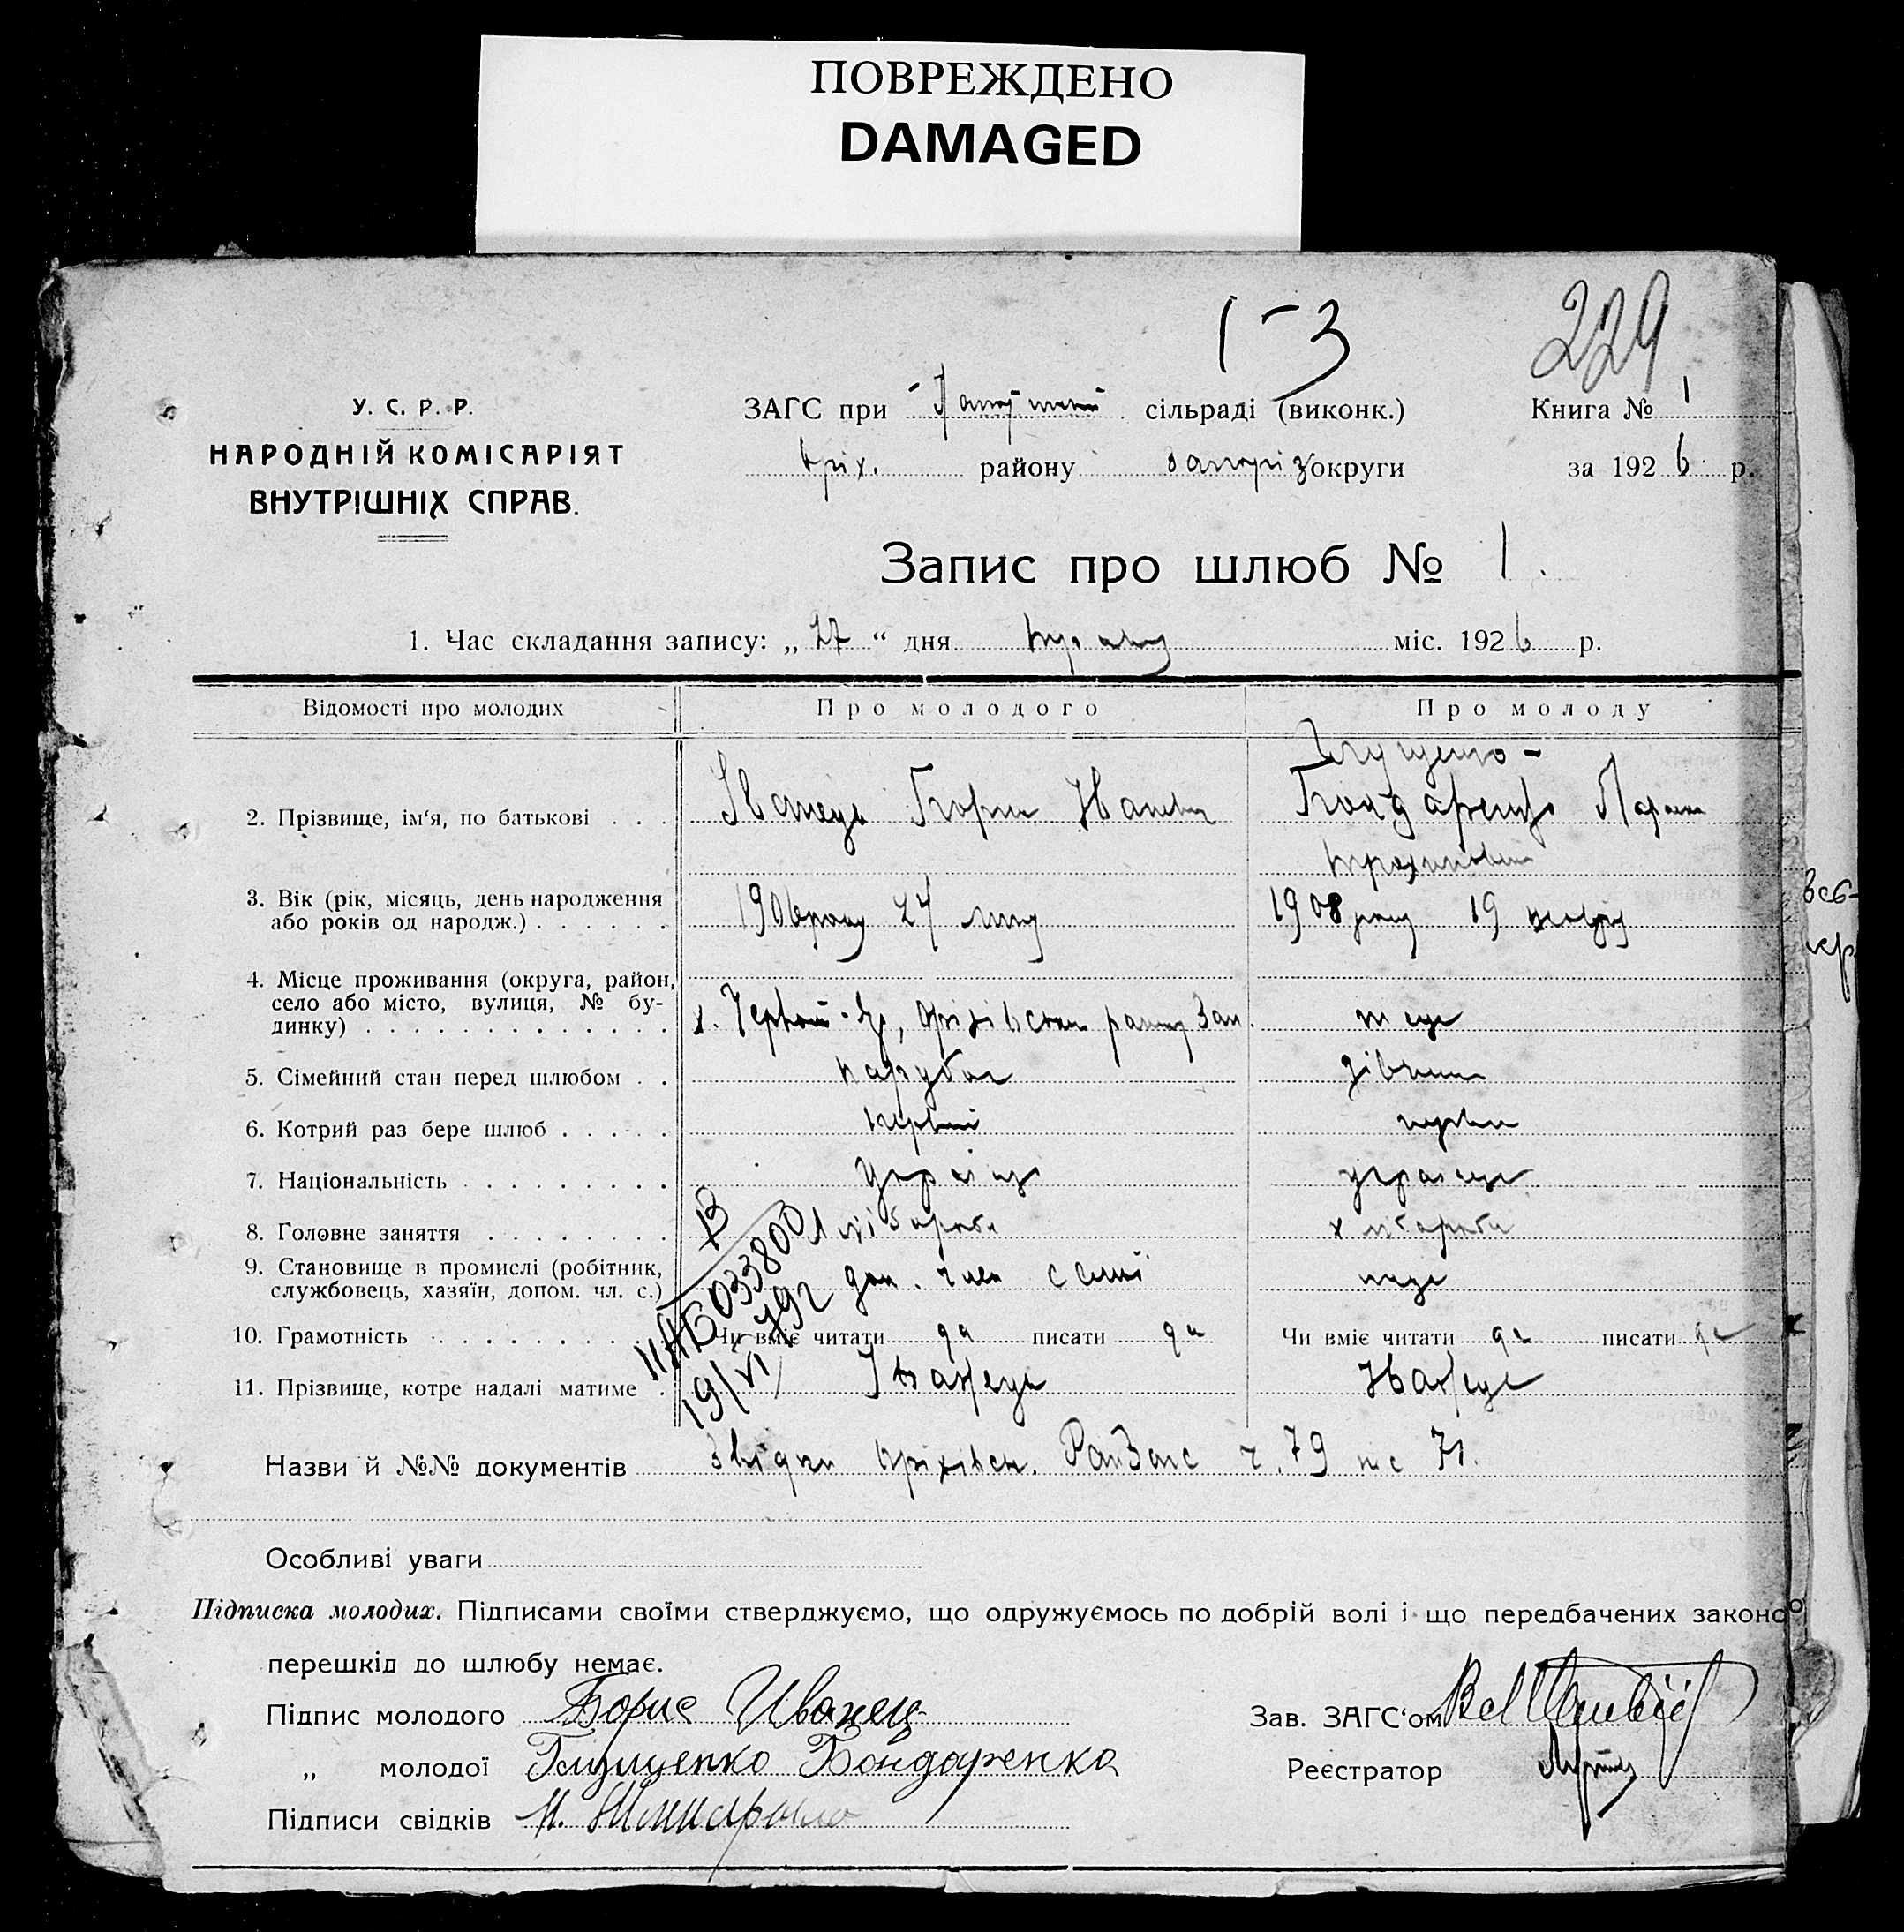 ПОВРЕЖДЕНО
DAMAGED
1-3
229
У. С. Р. Р.
НАРОДНІЙ КОМІСАРІЯТ
ВНУТРІШНІХ СПРАВ.
ЗАГС при сільраді (виконк.)
Оріх. району Запоріз округи
Книга № 1
за 1926 р.
Запис про шлюб № 1.
1. Час складання запису: „ 27 “ дня міс. 1926 р.
Відомості про молодих
Про молодого
Про молоду
Глущенко-
2. Прізвище, ім‘я, по батькові . . . Іванець Борис Иванов Бондаренко
3. Вік (рік, місяць, день народження
або років од народж.) . . . . . . 1906 року 24 1908 року 19
4. Місце проживання (округа, район,
село або місто, вулиця, № бу-
динку) . . . . . . . . . . . . . району Зап. теж
5. Сімейний стан перед шлюбом . . парубок дівчина
6. Котрий раз бере шлюб . . . . . первий первий
7. Національність . . . . . . . . .
8. Головне заняття . . . . . . . . хлібороб хлібороб
9. Становище в промислі (робітник,
службовець, хазяїн, допом. чл. с.) доп. член семьї
10. Грамотність . . . . . . . . . Чи вміє читати да писати да Чи вміє читати да писати да
11. Прізвище, котре надалі матиме . Іванець Иванець
II АБ 033800
19/VI 79г
Назви й №№ документів Оріхівськ. РайЗагс ч. 79 71.
Особливі уваги
Підписка молодих. Підписами своїми стверджуємо, що одружуємось по добрій волі і що передбачених законо
перешкід до шлюбу немає.
Підпис молодого Борис Иванец
„ молодої Глущенко Бондаренко
Підписи свідків
Зав. ЗАГС‘ом
Реєстратор